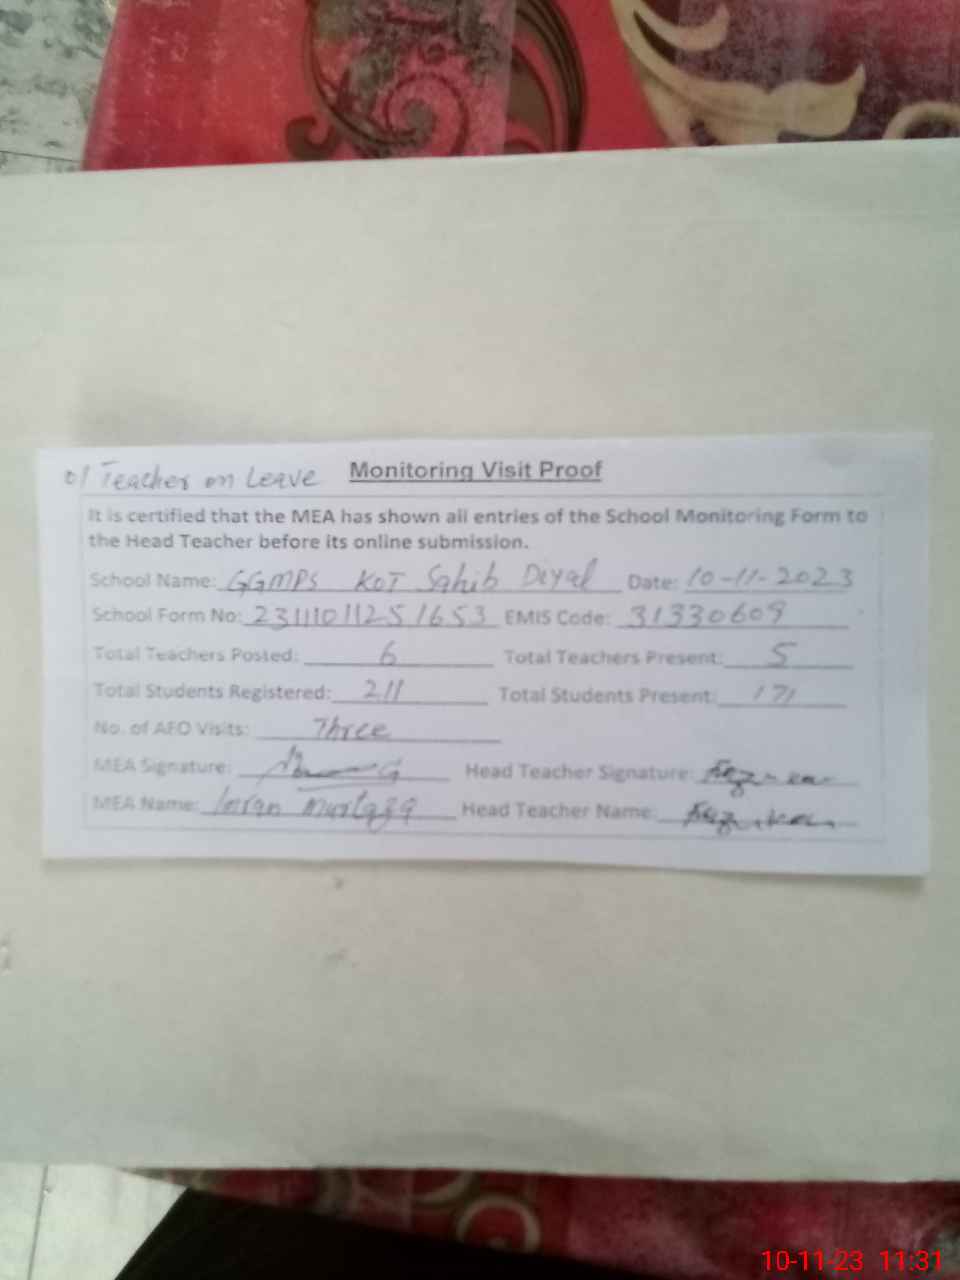 01 Teacher on Leave Monitoring Visit Proof
It is certified that the MEA has shown all entries of the School Monitoring Form to
the Head Teacher before its online submission.
School Name: GGMPS KOT Sahib Deyal Date: 10-11-2023
School Form No: 23111011251653 EMIS Code: 31330609
Total Teachers Posted: 6 Total Teachers Present: 5
Total Students Registered: 211 Total Students Present: 171
No. of AEO Visits: Three
MEA Signature: Head Teacher Signature:
MEA Name: Imran Murtaza Head Teacher Name:
10-11-23 11:31